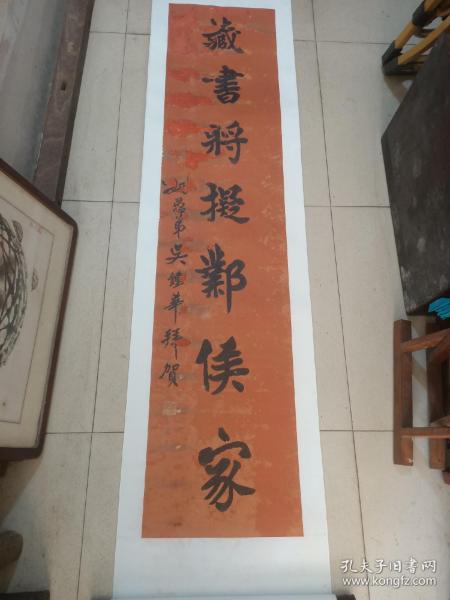 藏書將擬鄴侯家
姻第弟吴鍾華拜賀
孔夫子旧书网
www.kongfz.com